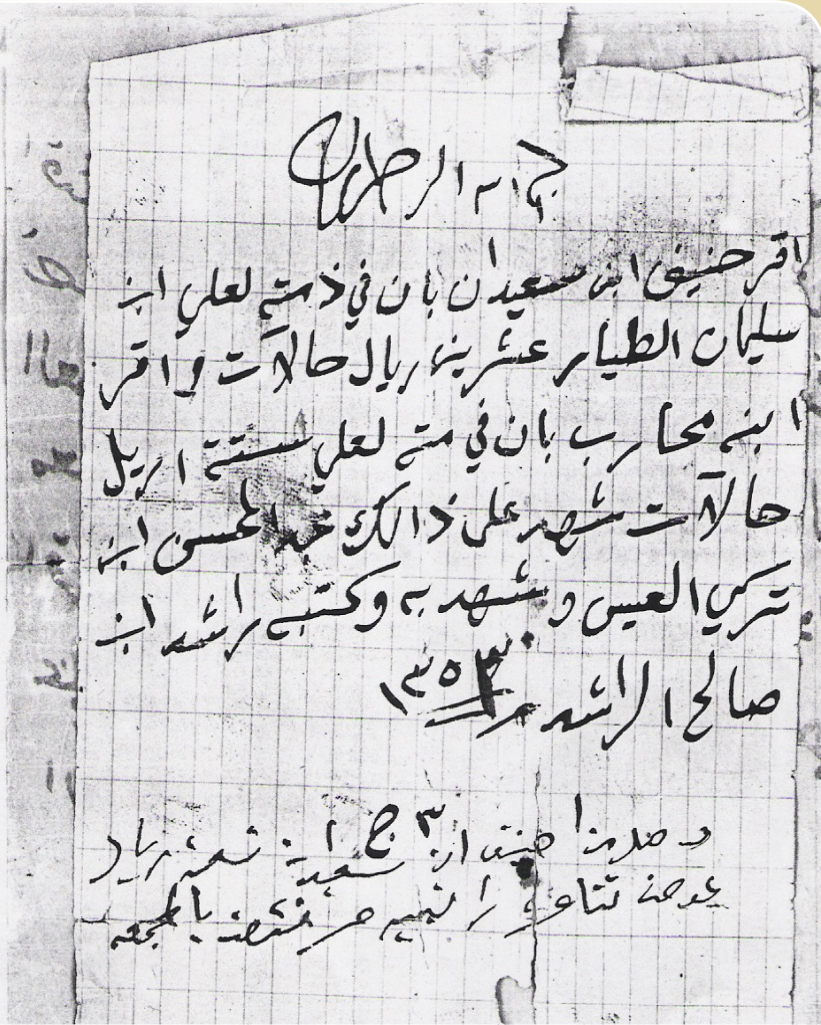 بسم الله الرحمن الرحيم
اقر حنيف ابن سعيدان بان في ذمته لعلي ابن
سليمان الطيار عشرين ريال حالات واقر
ابنه محارب بان في متـه لعلي ستة اريل
حالات شهد على ذالك عبد المحسن ابن
تركي العيس وشهد به وكتبه راشد ابن
صالح الراشد ١٣٥٣
٣ ج
وصلنا من حنيف ابن سعيدان تسعة ريال
عوض